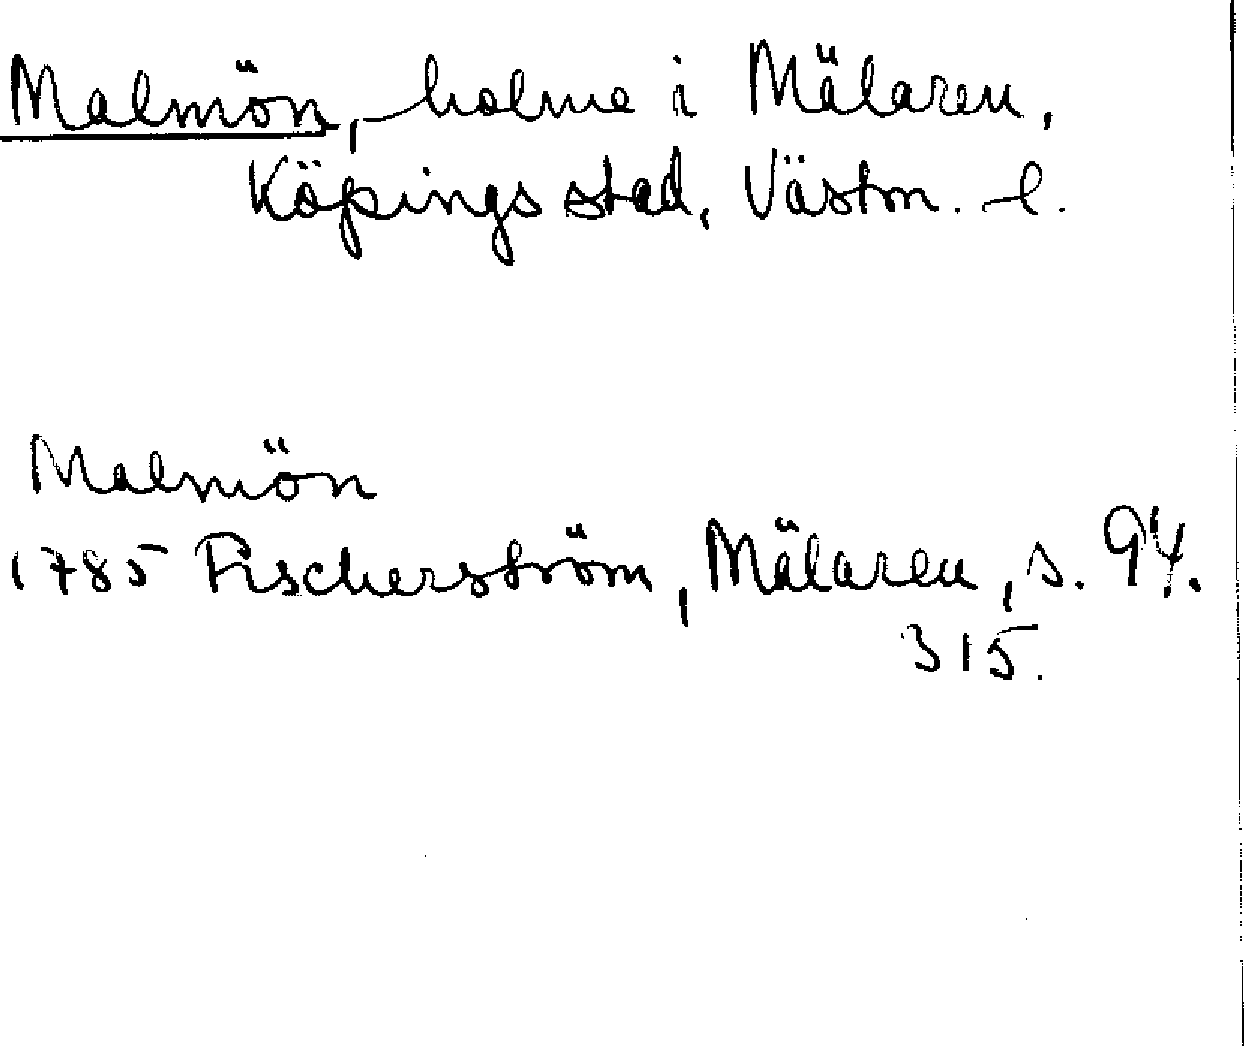 Malmön, holme i Mälaren,
Köpings stad, Västm. l.
Malmön
1785 Fischerström, Mälaren, s. 94.
315.